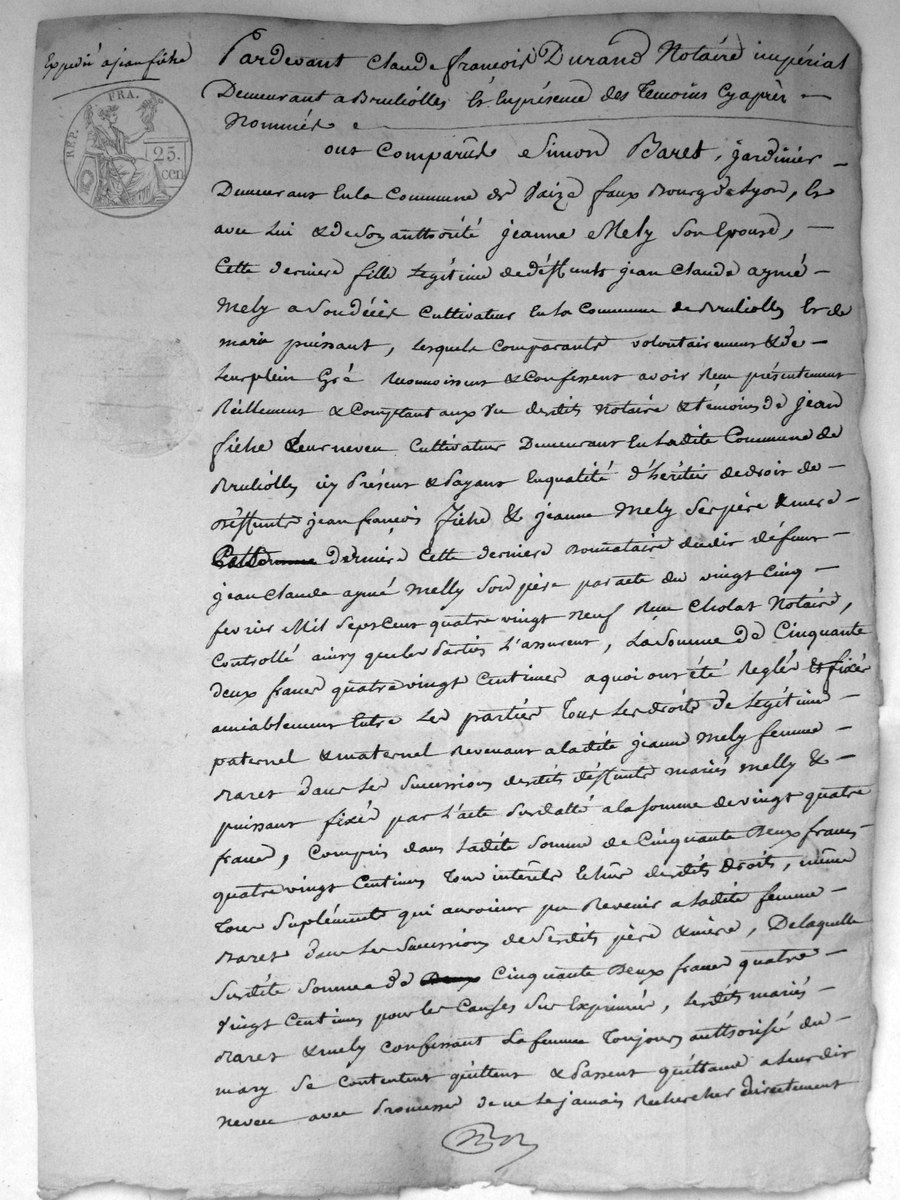 Expedié a jean fiche
REP. FRA.
25.
cen
Pardevant Claude françois Durand Notaire impérial
Demeurant a Brulliolles Et En présence des Temoins Cyaprès
Nommés
ont Comparus Simon Baret, jardinier
Demeurant En la Commune de Vaize faux Bourg de Lyon, Et
avec Lui & de Son authorité jeanne Mely Son Epouse,
Cette derniere fille Legitime de déffunts jean Claude aymé
Mely a Son décés Cultivateur En la Commune de Brulliolles Et de
marie puissant, Lesquels Comparants volontairement & de
Leur plein Gré Reconnoissent & Confessent avoir Reçu présentement
Réellement & Comptant aux vu desdits Notaire & témoins de jean
fiche Leur neveu Cultivateur Demeurant En Ladite Commune de
Brulliolles icy Présent & Payant En qualité d'héritier de droit de
déffunts jean françois fiche & jeanne Mely Ses père & mere
derniere Cette derniere Donnataire dudit défunt
jean Claude aymé Melly Son père par acte du vingt Cinq
fevrier Mil Sept Cent quatre vingt Neuf Reçu Cholat Notaire,
Controllé ainsy que les Parties L'assurent, La Somme de Cinquante
deux francs quatre vingt Centimes a quoi ont été Reglés & fixés
amiablement Entre Les parties Tous Les droits de Legitime
paternel & maternel Revenant a ladite jeanne Mely femme
Baret dans Les Successions desdits déffunts mariés Melly &
puissant fixés par L'acte Susdatté a la Somme de vingt quatre
francs, Compris dans Ladite Somme de Cinquante Deux francs
quatre vingt Centimes Tous intérêts desdits Droits, même
Tous Supléments qui auroient pu Revenir a Ladite femme
Baret dans Les Successions de Sesdits père & mère, De laquelle
Susdite Somme de Cinquante Deux francs quatre
vingt Centimes pour les Causes Sus Exprimées, Lesdits mariés
Baret & mely Confessant La femme Toujours authorisée du
mary Se Contentent quittent & Passent quittance a Leur dit
neveu avec Promesse de ne Le jamais Rechercher directement